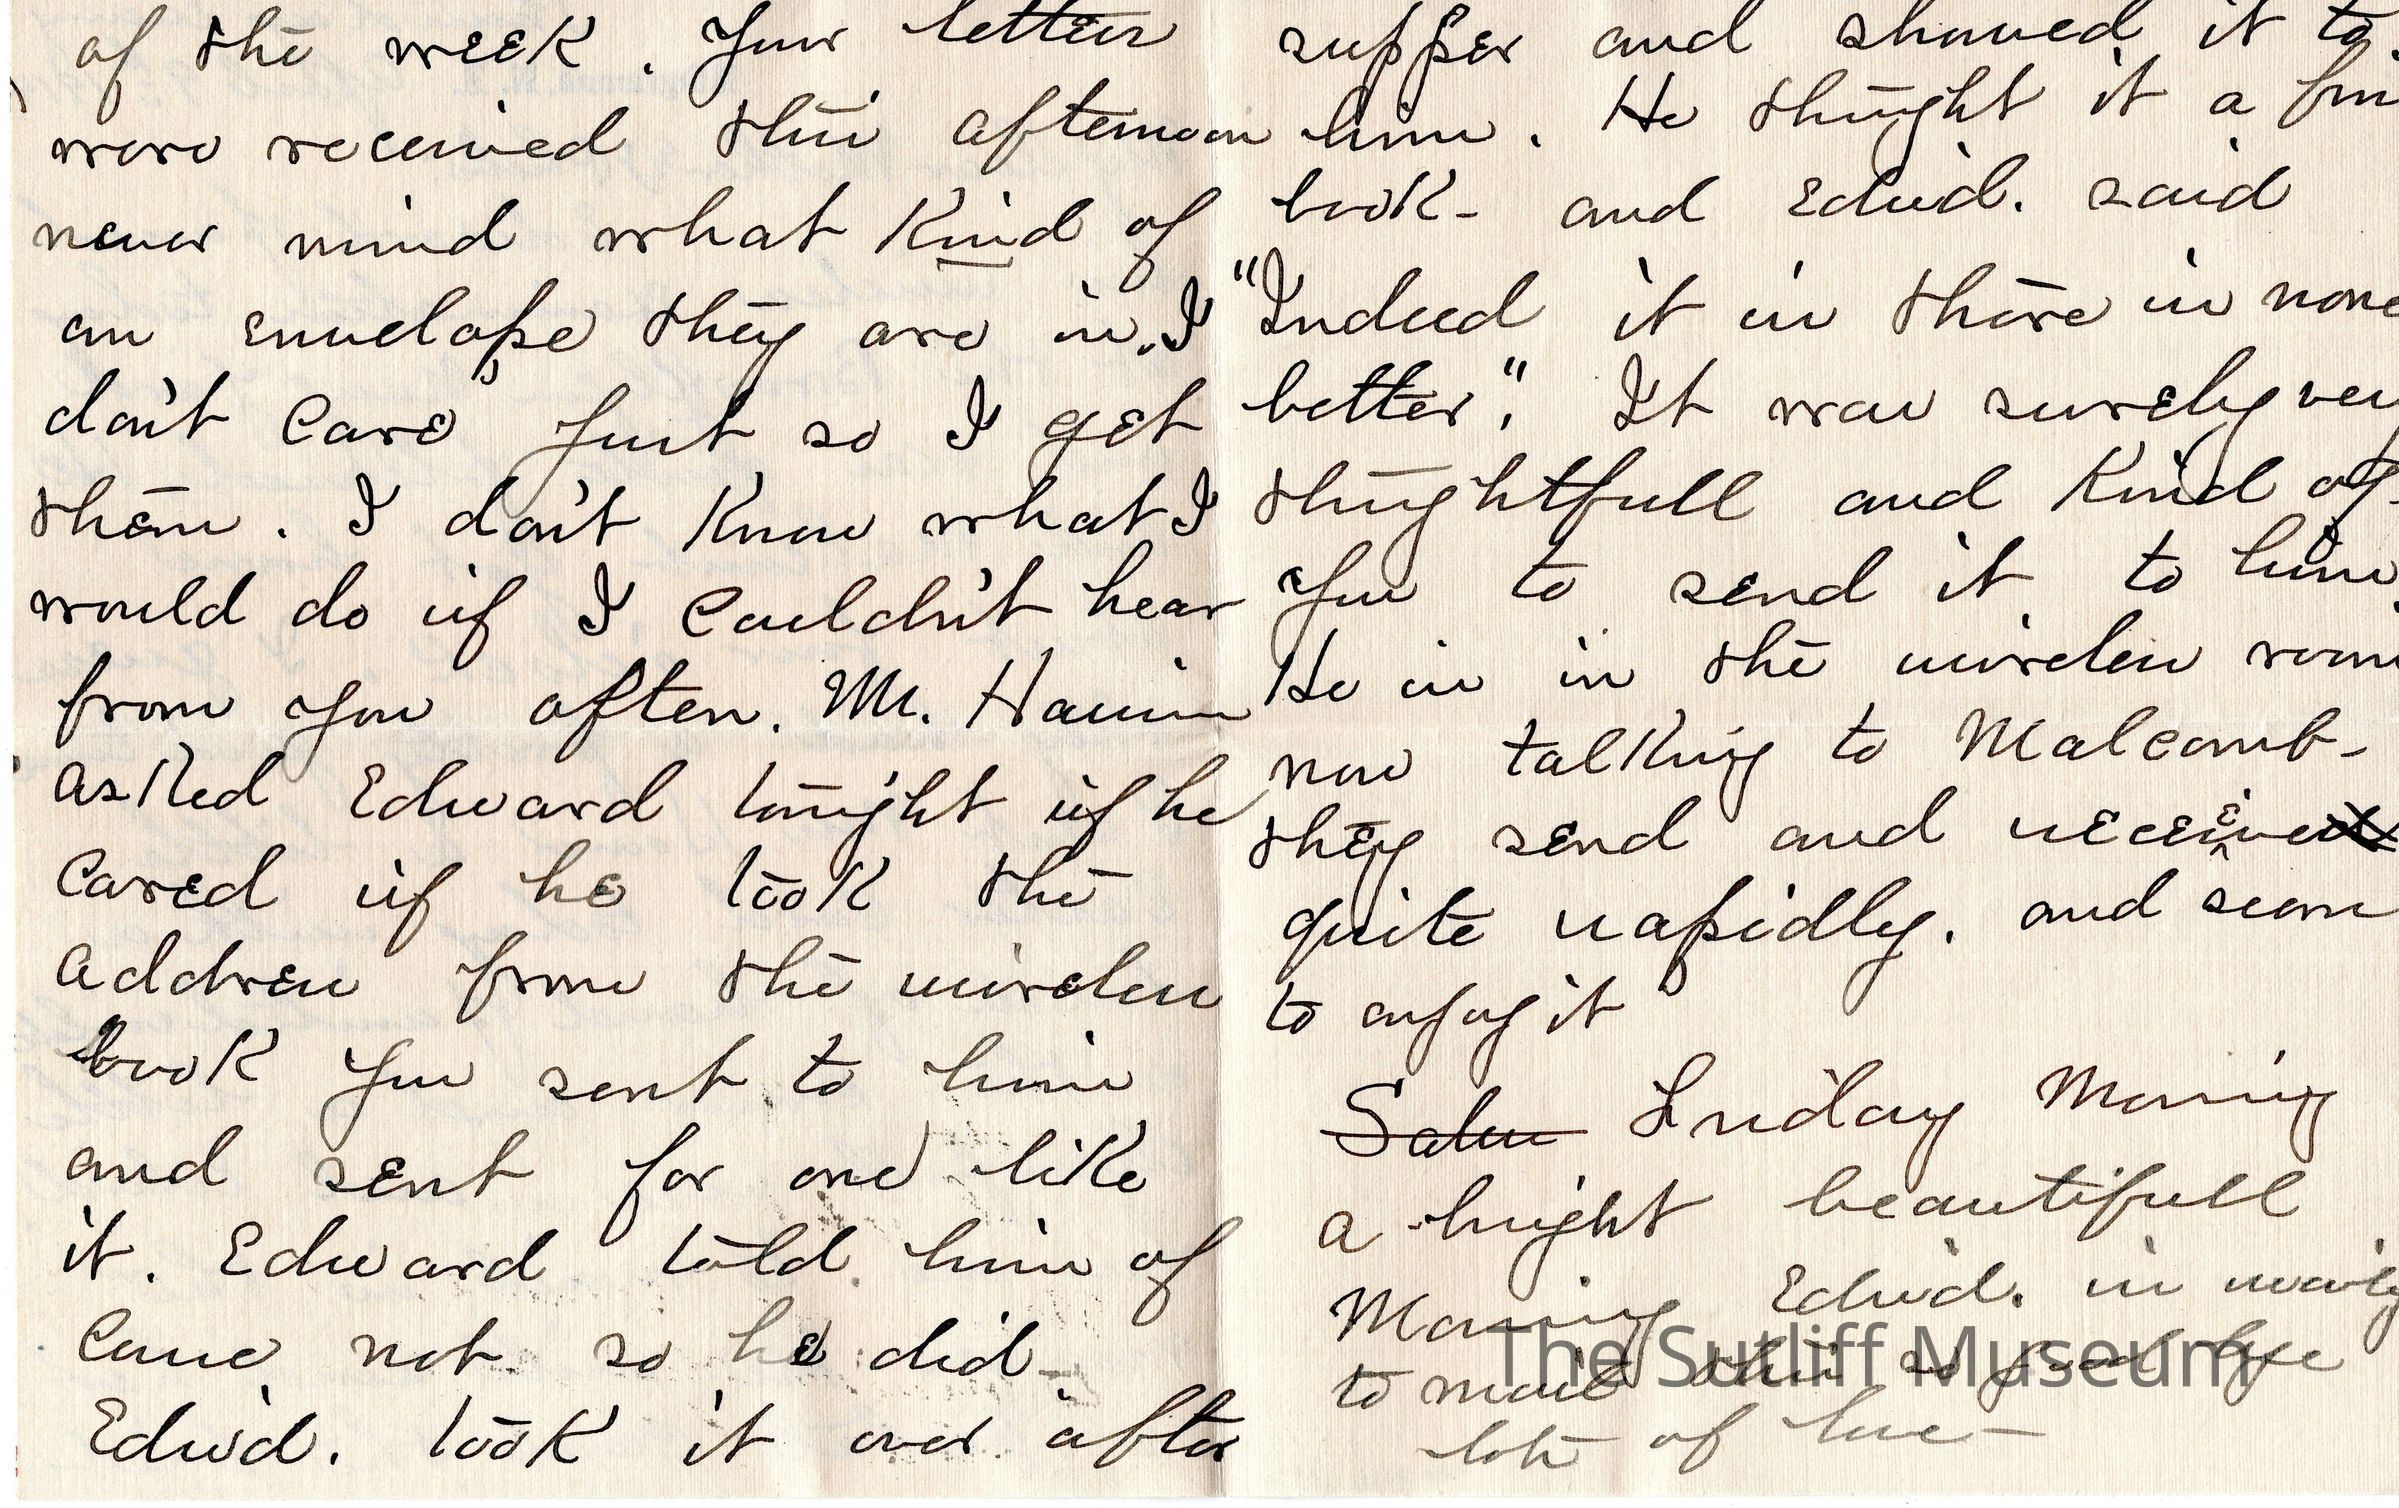 of the week. Your letters
were received this afternoon
never mind what kind of
an envelope they are in. I
don't care just so I get
them. I don't know what I
would do if I couldn't hear
from you often. Mr.
asked Edward tonight if he
cared if he took the
address from the wireless
book you sent to him
and sent for one like
it. Edward told him of
course not so he did-
Edw'd. took it over after
supper and showed it to
him. He thought it a fine
book- and Edw'd. said
"Indeed it is there is none
better". It was surely very
thoughtfull and kind of
you to send it to him.
He is in the wireless room
now talking to Malcomb-
they send and receive
quite rapidly. and seem
to enjoy it
Sunday Morning
a bright beautifull
Morning Edw'd. is waiting
to mail this so good bye
lots of love-
The Sutliff Museum